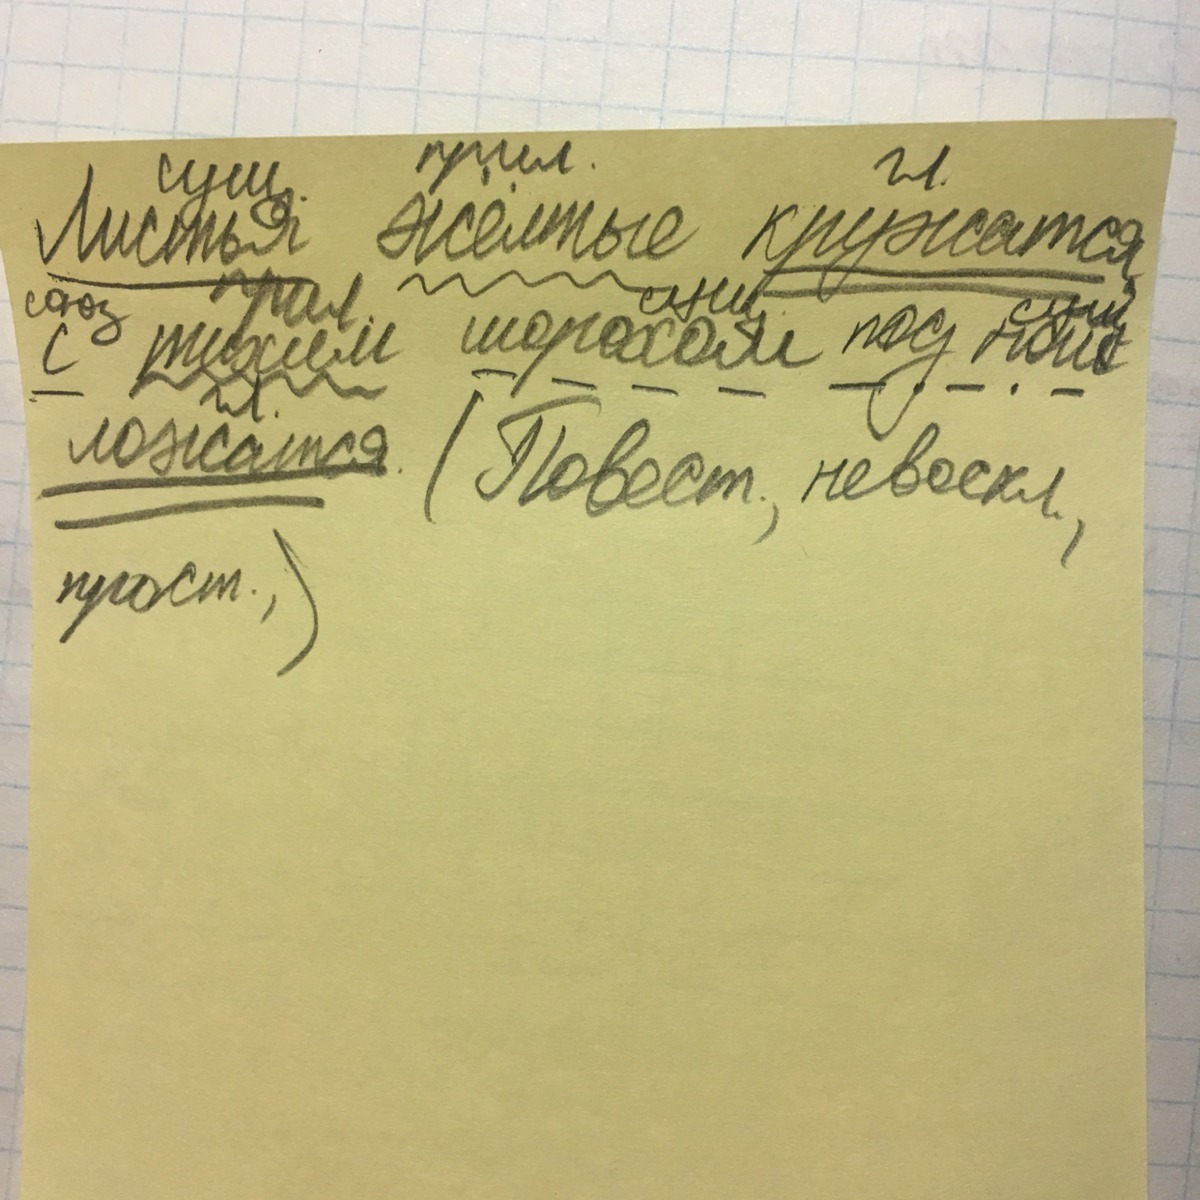 сущ. прил. гл.
Листья жёлтые кружатся
союз прил. сущ. сущ.
с тихим шорохом под ноги
гл.
ложатся. (Повест., невоскл.,
прост.,)